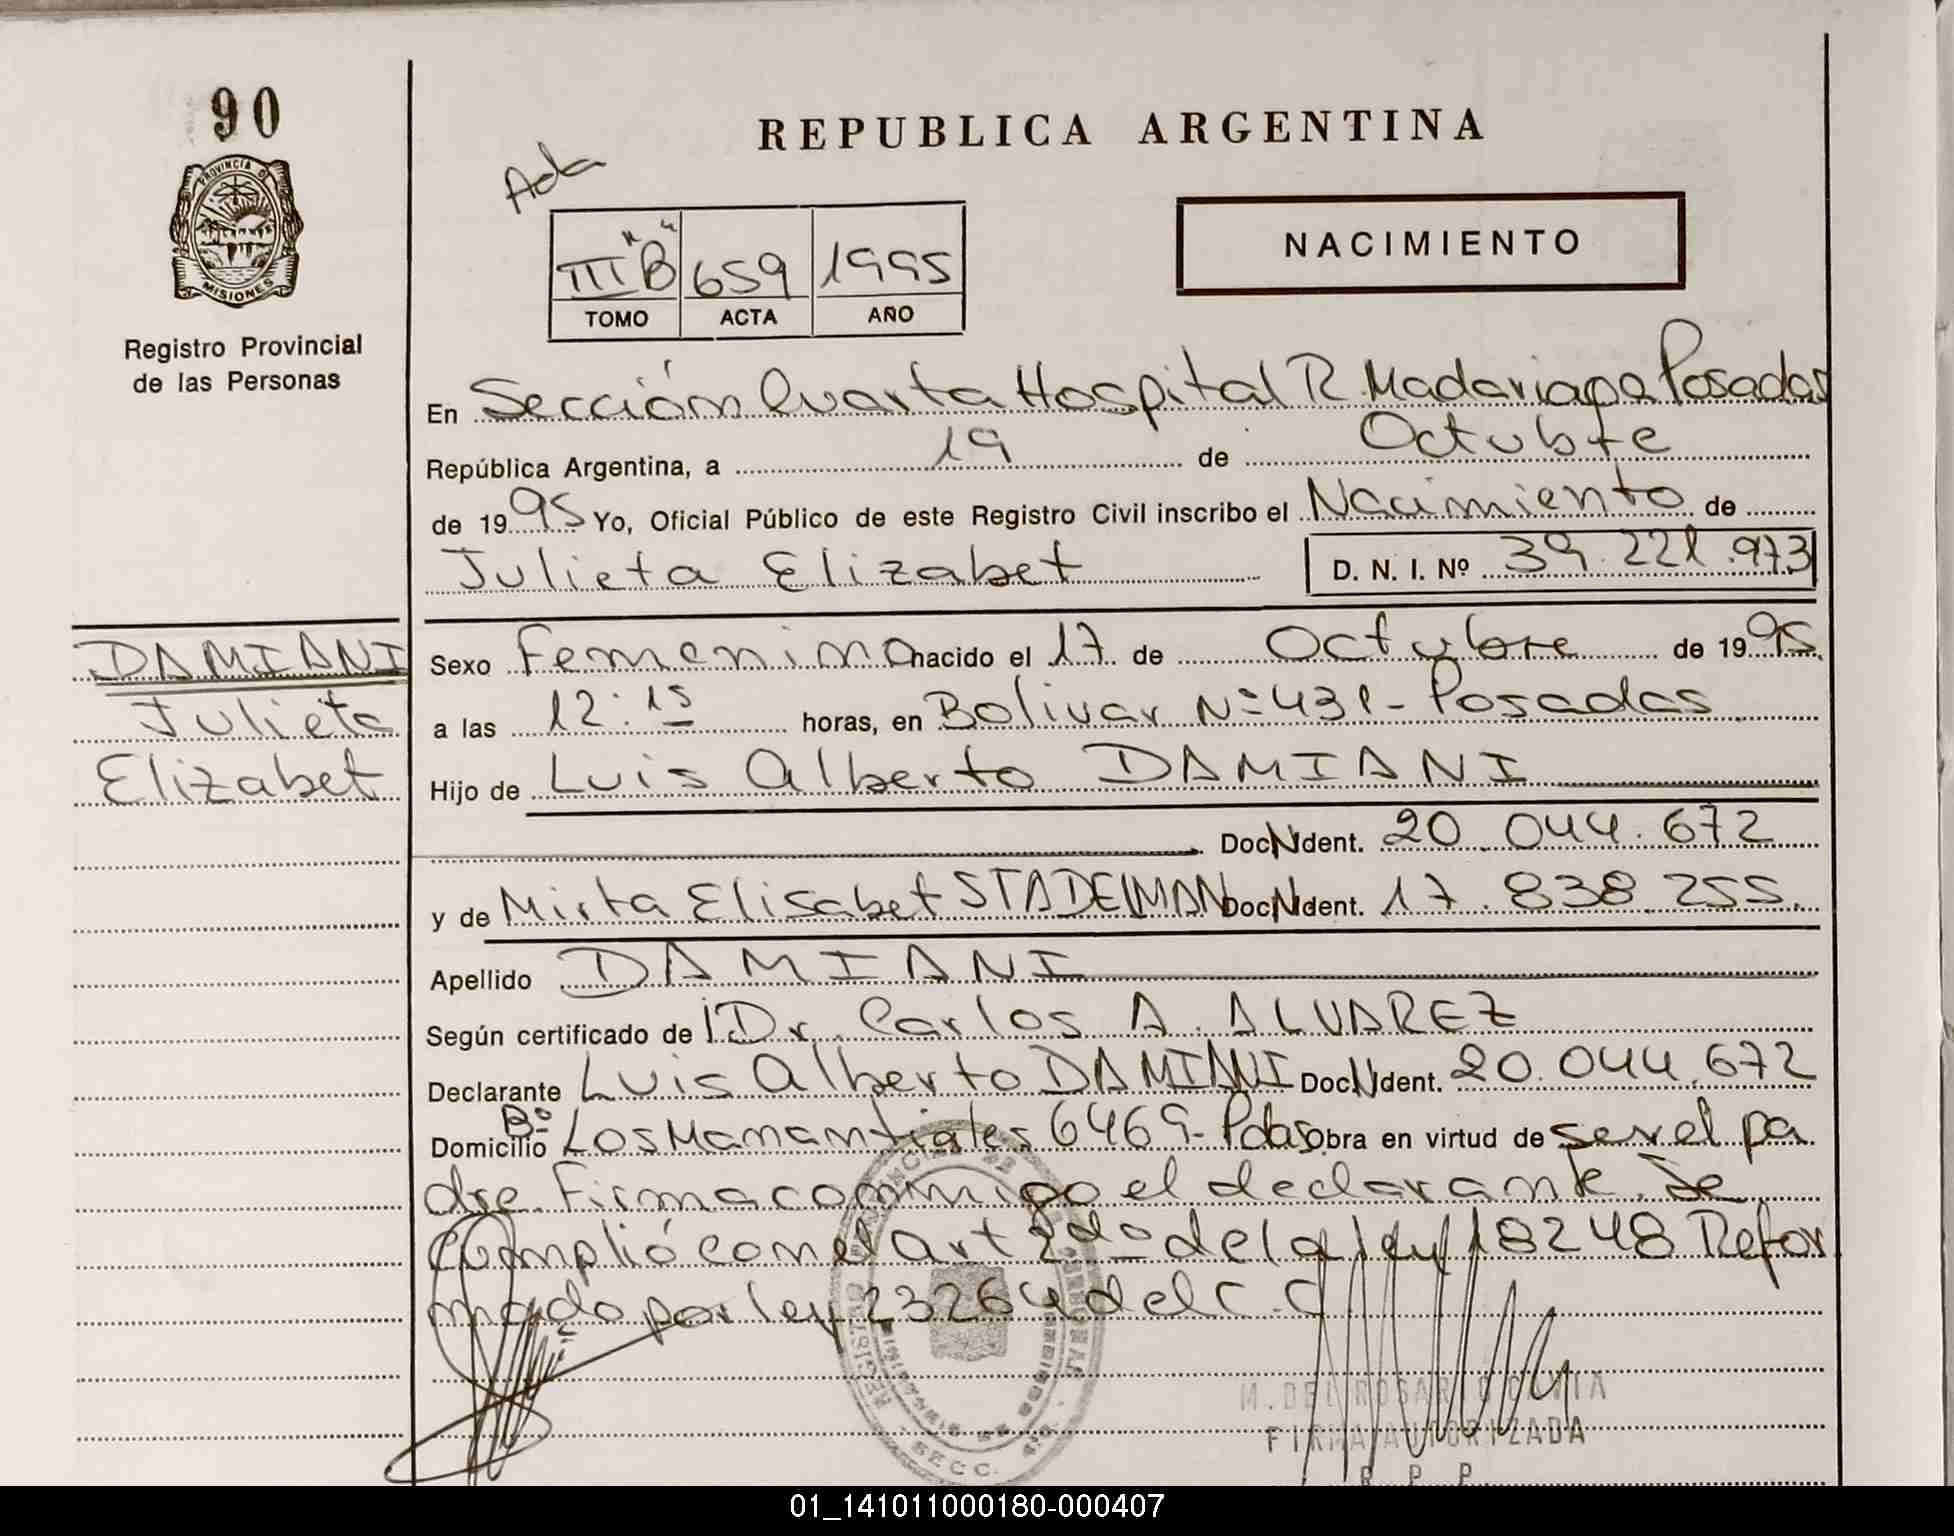 90
PROVINCIA DE
MISIONES
Registro Provincial
de las Personas
REPUBLICA ARGENTINA
Acta
III "B" 659 1995
TOMO ACTA AÑO
NACIMIENTO
En Sección Cuarta Hospital R. Madariaga Posadas
República Argentina, a 19 de Octubre
de 1995 Yo, Oficial Público de este Registro Civil inscribo el Nacimiento de
Julieta Elizabet D. N. I. Nº 39.221.973
DAMIANI
Julieta
Elizabet
Sexo Femenino nacido el 17 de Octubre de 1995.
a las 12:15 horas, en Bolivar Nº 431 - Posadas
Hijo de Luis Alberto DAMIANI
Doc N Ident. 20.044.672
y de Mirta Elisabet STADELMAN Doc N Ident. 17.838.255.
Apellido DAMIANI
Según certificado de Dr. Carlos A. ALVAREZ
Declarante Luis Alberto DAMIANI Doc N Ident. 20.044.672
Domicilio Bº Los Manantiales 6469 - Pdas obra en virtud de ser el pa
dre. Firma conmigo el declarante. Se
cumplió con el art 2do de la ley 18248 Refor
mado por ley 23264 del C.C
M. DEL ROSAR
FIRMA AUTORIZADA
R P P
SECC.
01_141011000180-000407